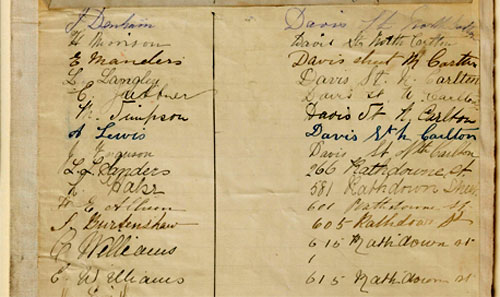 J Denham Davis St North Carlton
H Morrison Davis St North Carlton
E Manders Davis street N Carlton
L. Langley Davis St. N. Carlton
C. Davis St N Carlton
W. Simpson Davis St N Carlton
A Lewis Davis St N Carlton
J Ferguson Davis St Nth Carlton
L. L. Sanders 266 Rathdowne St
Hake 581 Rathdown Street
W E Allison 601 Rathdowne St
S Burtenshaw 605 Rathdown St
Williams 615 Rathdown St
E Williams 615 Rathdown St